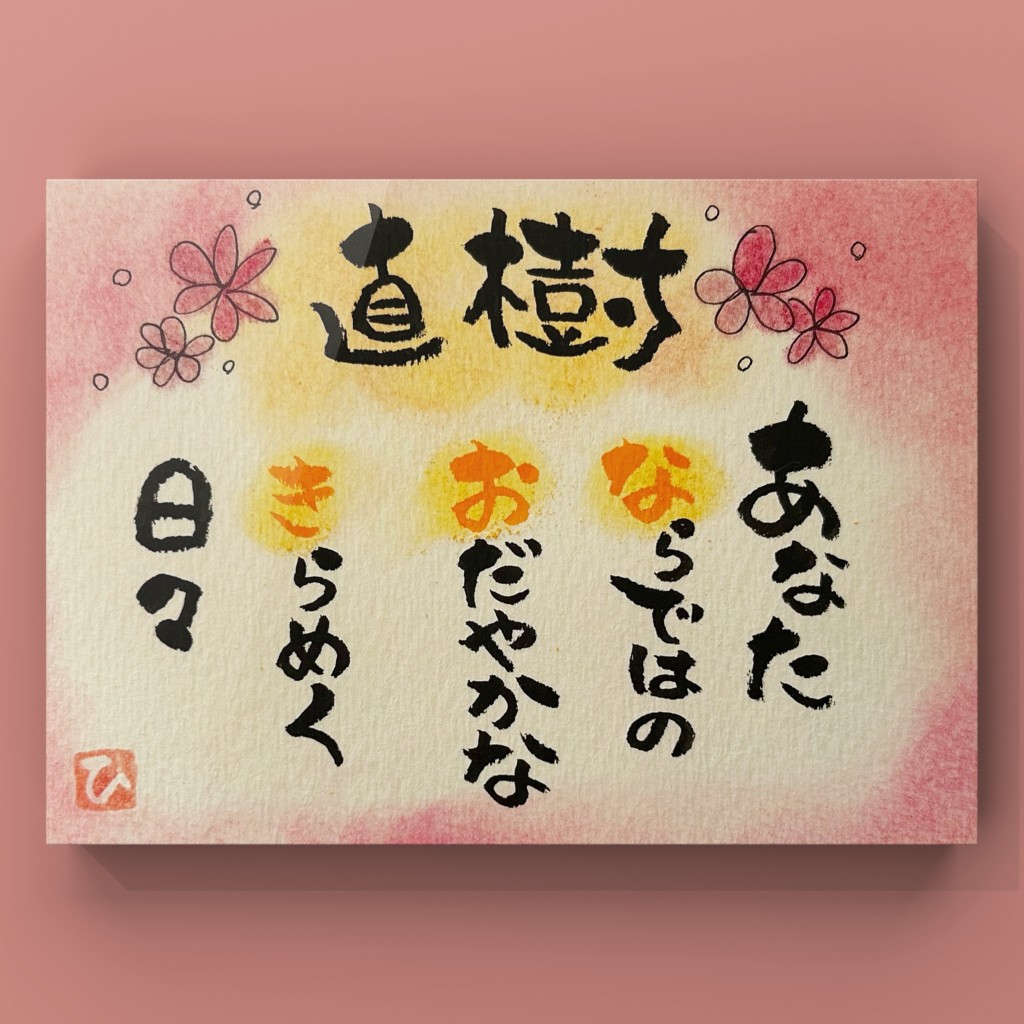 直樹
あなた
ならではの
おだやかな
きらめく
日々
ひ